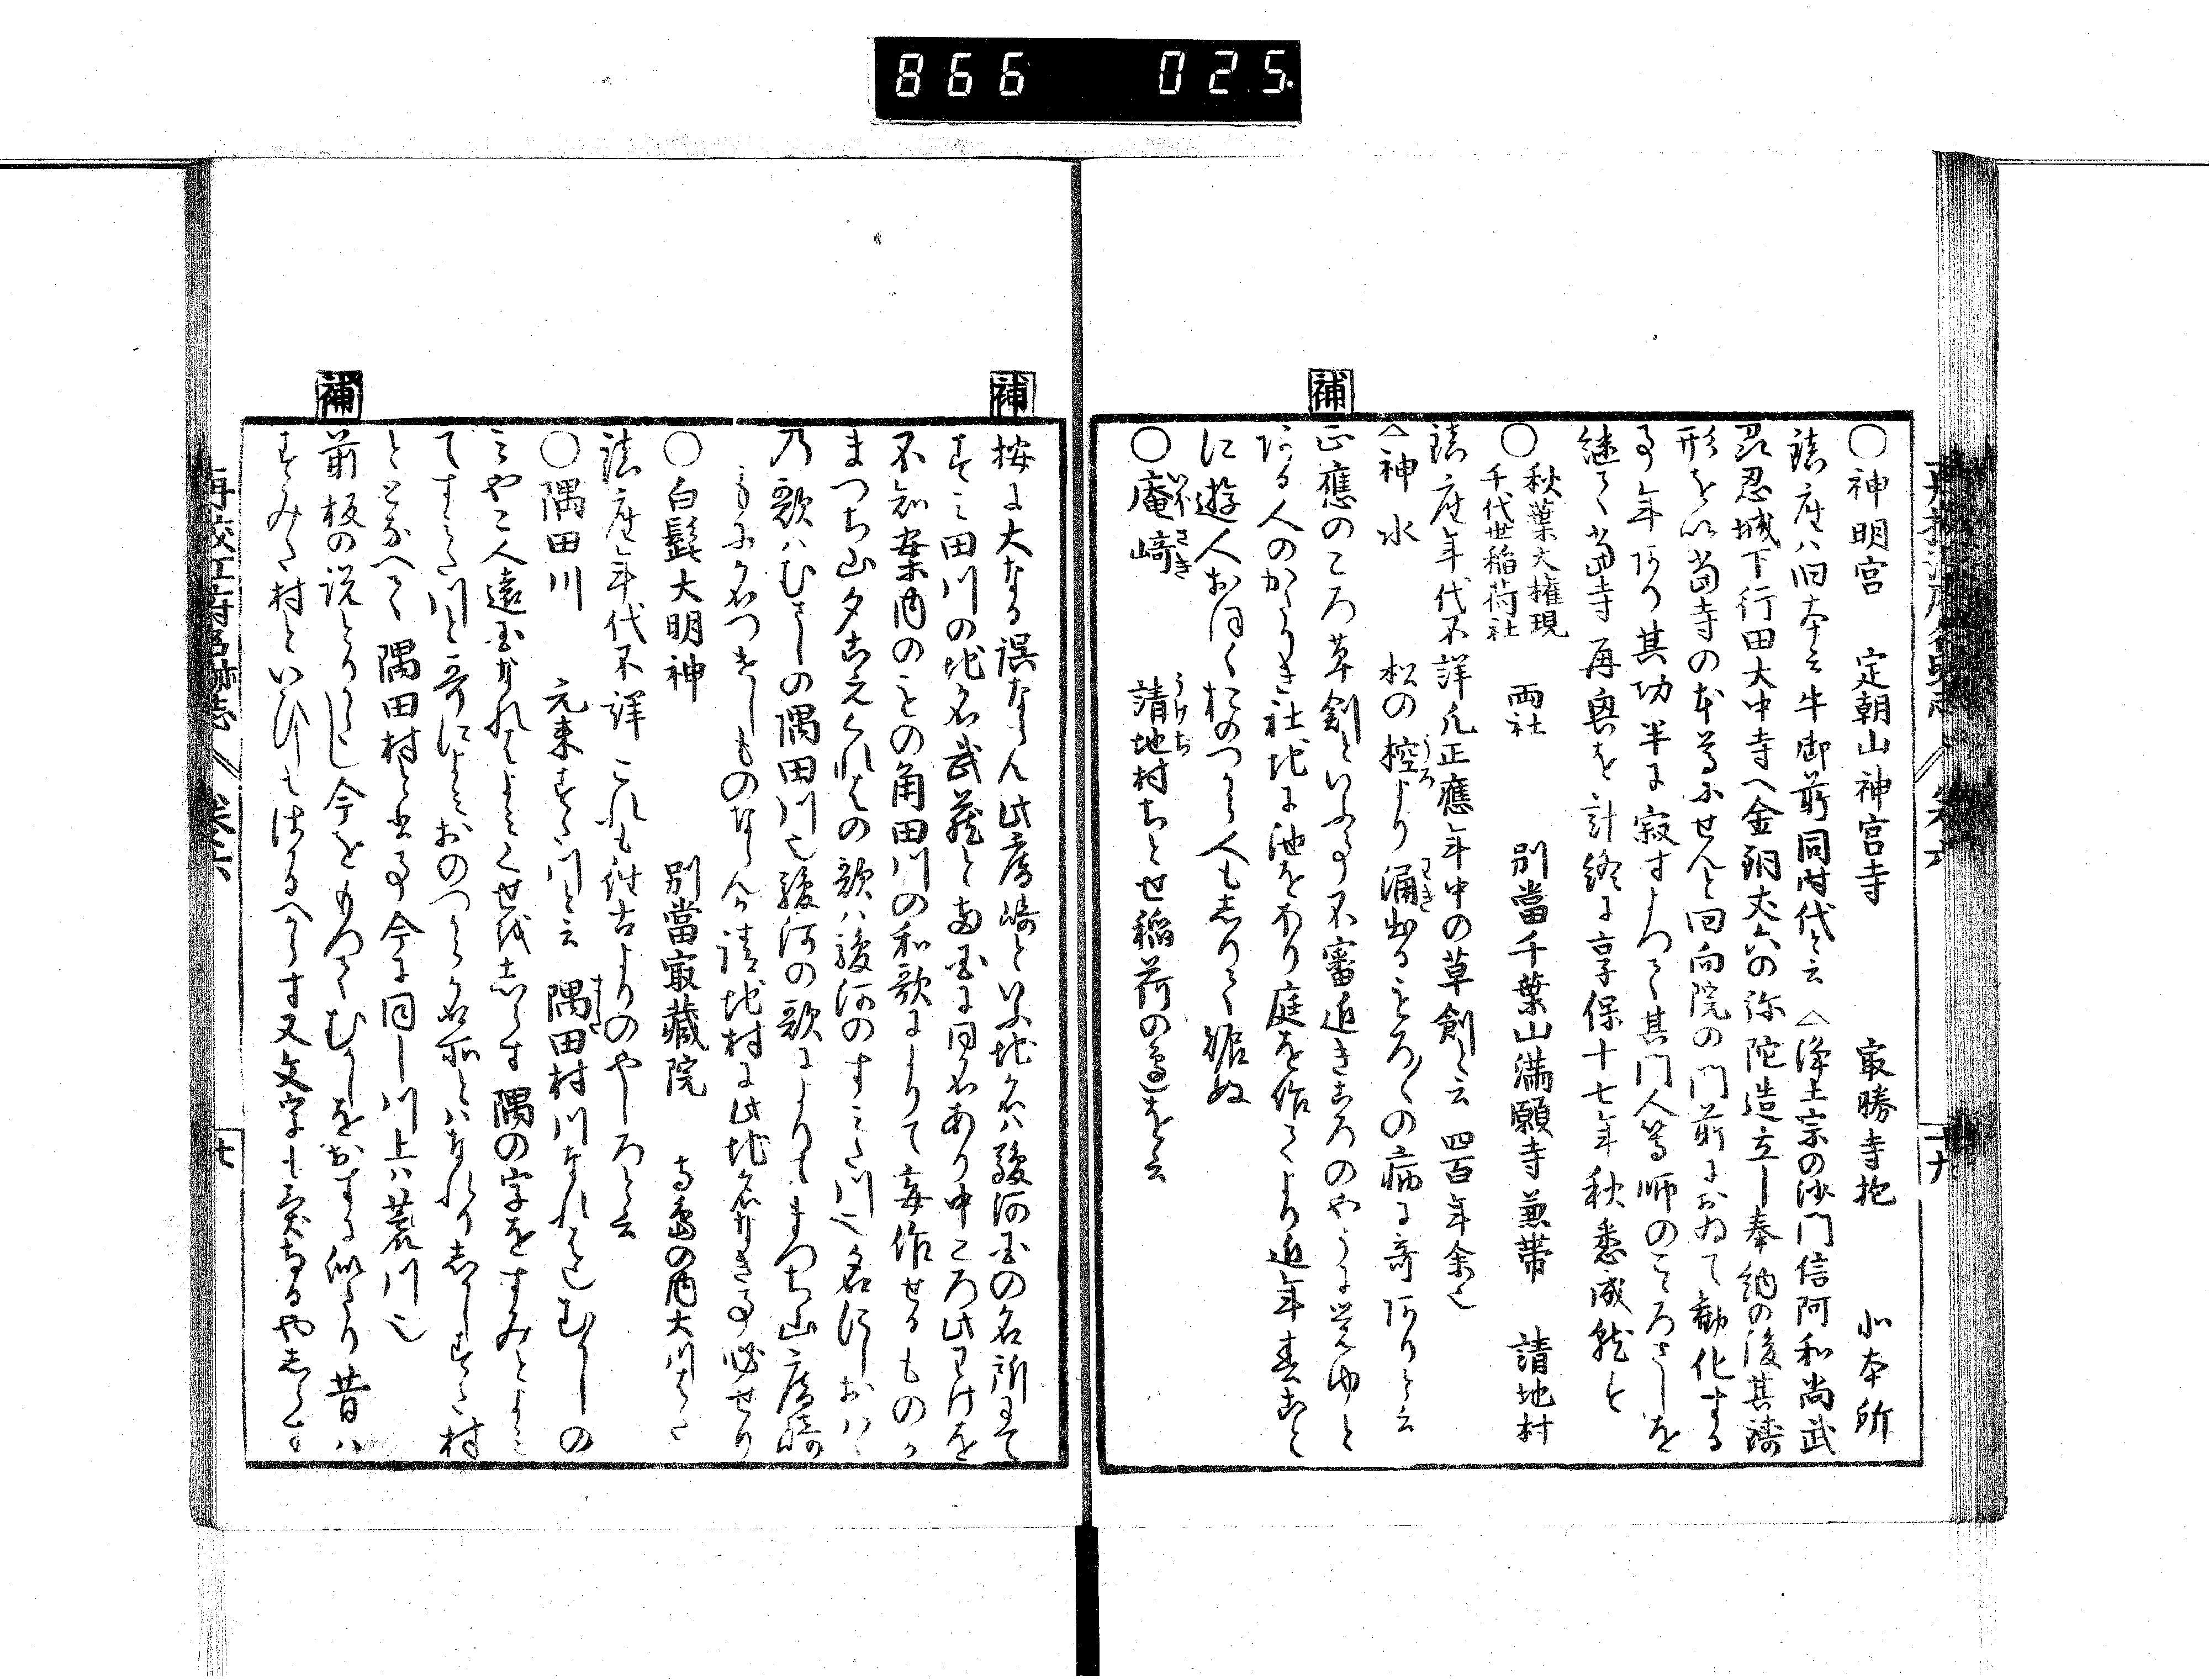 866 025.
○神明宮 定朝山神宮寺 最勝寺抱 北本所
鎮座ハ旧本云牛御前同時代と云 △浄土宗の沙門信阿和尚武
忍城下行田大中寺へ金銅丈六の弥陀造立し奉納の後其
形を以当寺の本尊にせんと回向院の門前におゐて勧化する
事年あり其功半に寂すよつて其門人等師のこころさしを
継て当寺再興を計終に享保十七年秋悉成就と
○秋葉大権現 千代世稲荷社 両社 別當千葉山満願寺兼帯 請地村
鎮座年代不詳凡正應年中の草創と云 四百年余也
△神水 松の控うろより涌わき出る ところ〳〵の病に奇ありと云
補
正應のころ草創といふ事不審近きころのやうに覚ゆと
ある人のかたりき社地に池をほり庭を作てより近年春ことに
に遊人おほくおのつから人もしりて
○庵崎いほさき 請地村うけちちとせ稲荷の辺を云
補
按に大なる誤ならん此庵崎といふ地名ハ駿河国の名所にて
すミ田川の地名武蔵と両国に同名あり中ころ此わけを
不知案内のもの角田川の和歌によりて妄作せるものか
まつち山夕こえくれての歌ハ駿河のすミた川也名にしおハヽ
乃歌ハむさしの隅田川也駿河の歌によりてまつち山庵崎
もに名つけしものならんか請地村に此地名なき事必せり
○白髭大明神 別當最蔵院 寺島の内大川はた
鎮座年代不詳これも往古よりのやしろと云
○隅田川 元来すた川と云 隅すた田村川なれはむかしの
ミやこ人遠国なれはよミくせをしらす隅の字をすみとよミ
てすミた川と哥によミおのつから名所とハなれりしかしすた村
ととなへて隅田村と書事今に同し川上ハ荒川也
補
前板の説とりかたし今をもつてむかしをおすに似たり昔ハ
すみた村といひしもはかるへからす又文字も
再校江府名跡志 巻六 七